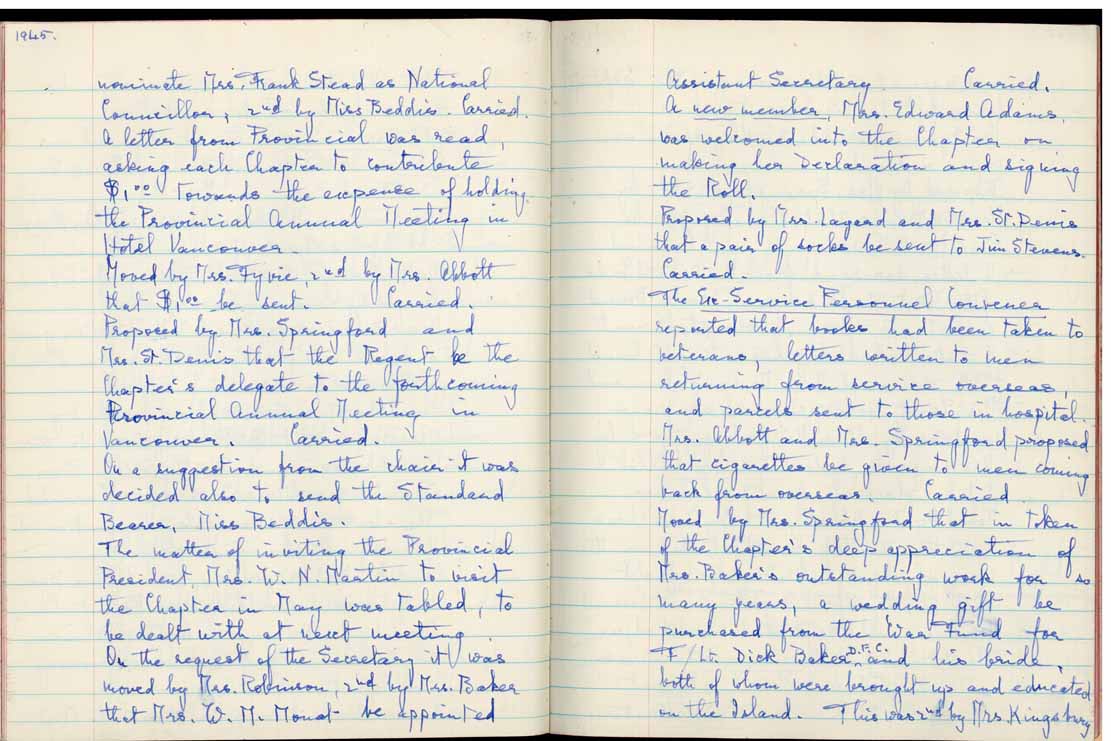 1945.
nominate Mrs. Frank Stead as National
Councillor, 2nd by Miss Beddis. Carried.
A letter from Provincial was read,
asking each Chapter to contribute
$1.00 towards the expense of holding
the Provincial Annual Meeting in
Hotel Vancouver.
Moved by Mrs. Fyvie, 2nd by Mrs. Abbott
that $1.00 be sent. Carried.
Proposed by Mrs. Springford and
Mrs. St. Denis that the Regent be the
Chapter's delegate to the forthcoming
Provincial Annual Meeting in
Vancouver. Carried.
On a suggestion from the chair it was
decided also to send the Standard
Bearer, Miss Beddis.
The matter of inviting the Provincial
President, Mrs. W. N. Martin to visit
the Chapter in May was tabled, to
be dealt with at next meeting.
On the request of the Secretary it was
moved by Mrs. Robinson, 2nd by Mrs. Baker
that Mrs. W. M. Mouat be appointed
Assistant Secretary. Carried.
A new member, Mrs. Edward Adams,
was welcomed into the Chapter on
making her Declaration and signing
the Roll.
Proposed by Mrs. Layard and Mrs. St. Denis
that a pair of socks be sent to Jim Stevens.
Carried.
The Ex-Service Personnel Convener
reported that books had been taken to
veterans, letters written to men
returning from service overseas,
and parcels sent to those in hospital.
Mrs. Abbott and Mrs. Springford proposed
that cigarettes be given to men coming
back from overseas. Carried.
Moved by Mrs. Springford that in token
of the Chapter's deep appreciation of
Mrs. Baker's outstanding work for so
many years, a wedding gift be
purchased from the War Fund for
F/Lt. Dick Baker D.F.C. and his bride,
both of whom were brought up and educated
on the Island. This was 2nd by Mrs. Kingsbury